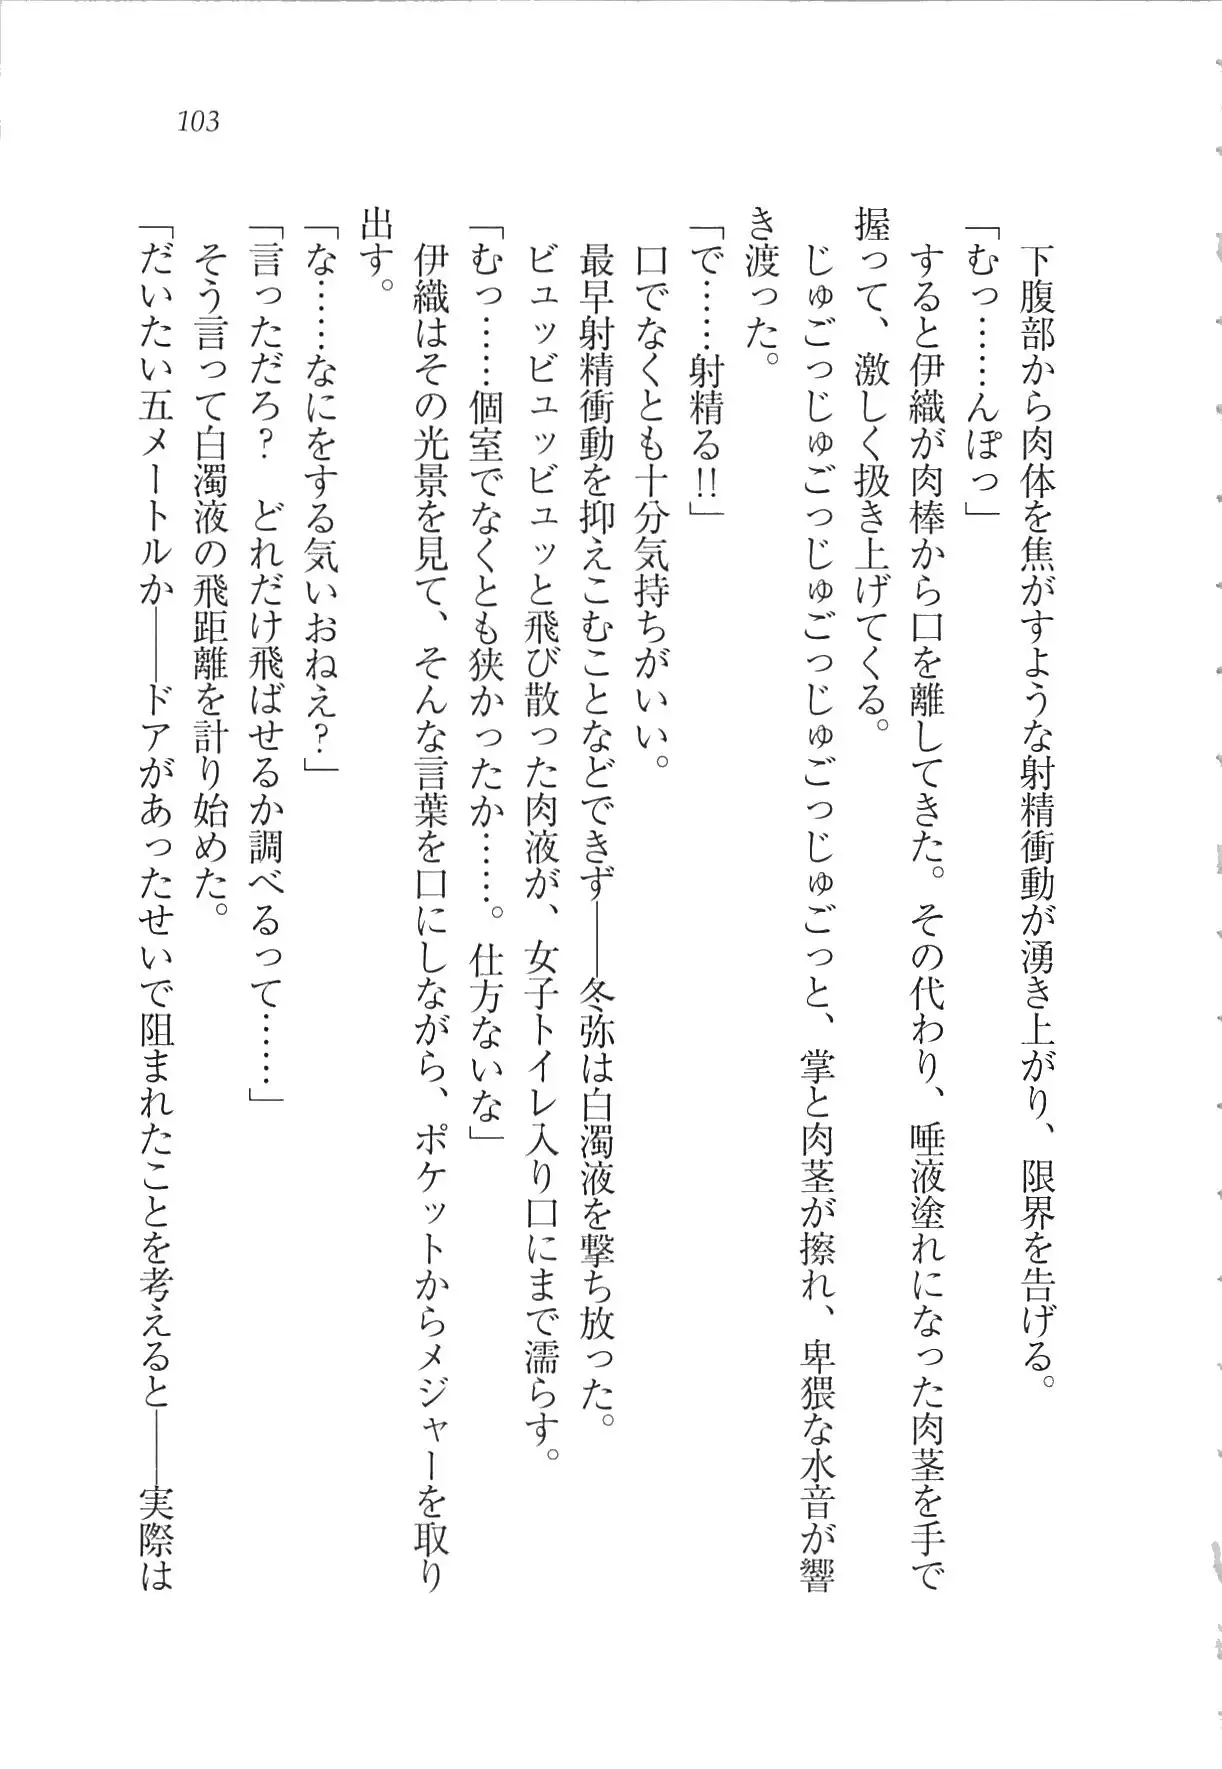 103
下腹部から肉体を焦がすような射精衝動が湧き上がり、限界を告げる。
「むっ……んぽっ」
すると伊織が肉棒から口を離してきた。その代わり、唾液塗れになった肉茎を手で
握って、激しく扱き上げてくる。
じゅごっじゅごっじゅごっじゅごっじゅごっと、掌と肉茎が擦れ、卑猥な水音が響
き渡った。
「で……射精る!!」
口でなくとも十分気持ちがいい。
最早射精衝動を抑えこむことなどできず――冬弥は白濁液を撃ち放った。
ビュッビュッビュッと飛び散った肉液が、女子トイレ入り口にまで濡らす。
「むっ……個室でなくとも狭かったか……。仕方ないな」
伊織はその光景を見て、そんな言葉を口にしながら、ポケットからメジャーを取り
出す。
「な……なにをする気いおねえ?」
「言っただろ?　どれだけ飛ばせるか調べるって……」
そう言って白濁液の飛距離を計り始めた。
「だいたい五メートルか――ドアがあったせいで阻まれたことを考えると――実際は